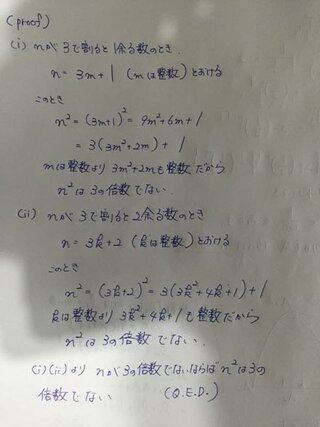 (proof)
(i) nが3で割ると1余る数のとき.
n = 3m + 1 (mは整数) とおける
このとき
n² = (3m+1)² = 9m² + 6m + 1
= 3(3m² + 2m) + 1
mは整数より 3m²+2mも整数だから
n²は3の倍数でない.
(ii) nが3で割ると2余る数のとき
n = 3k + 2 (kは整数) とおける
このとき
n² = (3k+2)² = 3(3k² + 4k + 1) + 1
kは整数より 3k² + 4k + 1も整数だから
n²は3の倍数でない.
(i)(ii)より nが3の倍数でないならば n²は3の
倍数でない (Q.E.D.)